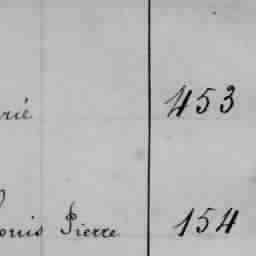 rié 453
Louis Pierre 154